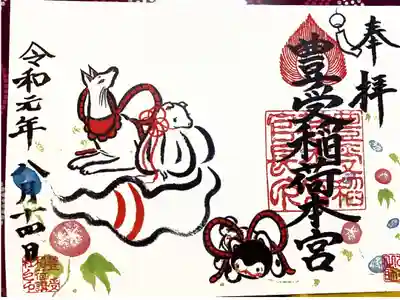 奉拝
豊受稲荷本宮
令和元年 八月十四日